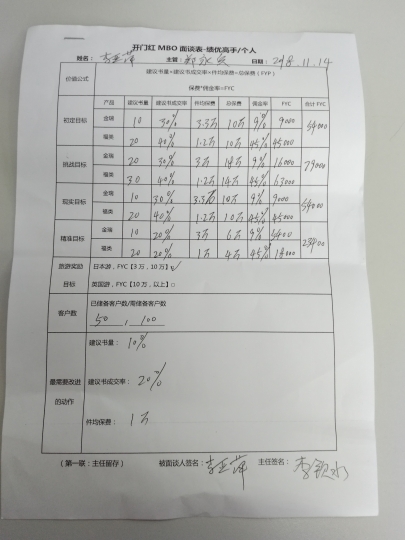 开门红 MBO 面谈表-绩优高手/个人
姓名： 主管： 日期：2018.11.14
价值公式
建议书量*建议书成交率*件均保费=总保费（FYP）
保费*佣金率=FYC
产品 建议书量 建议书成交率 件均保费 总保费 佣金率 FYC 合计 FYC
初定目标 金瑞 10 30% 3.3万 10万 9% 9000 54000
福类 20 40% 1.2万 10万 45% 45000
挑战目标 金瑞 20 30% 3万 18万 9% 16000 79000
福类 30 40% 1.2万 14万 45% 63000
现实目标 金瑞 10 30% 3.3万 10万 9% 9000 54000
福类 20 40% 1.2万 10万 45% 45000
精准目标 金瑞 10 20% 3万 6万 9% 5400 23400
福类 20 20% 1万 4万 45% 18000
旅游奖励 日本游，FYC【3 万，10 万】
目标 英国游，FYC【10 万，以上】□
客户数 已储备客户数/需储备客户数
50 , 100
最需要改进的动作
建议书量： 10%
建议书成交率： 20%
件均保费： 1万
（第一联：主任留存） 被面谈人签名： 主任签名：